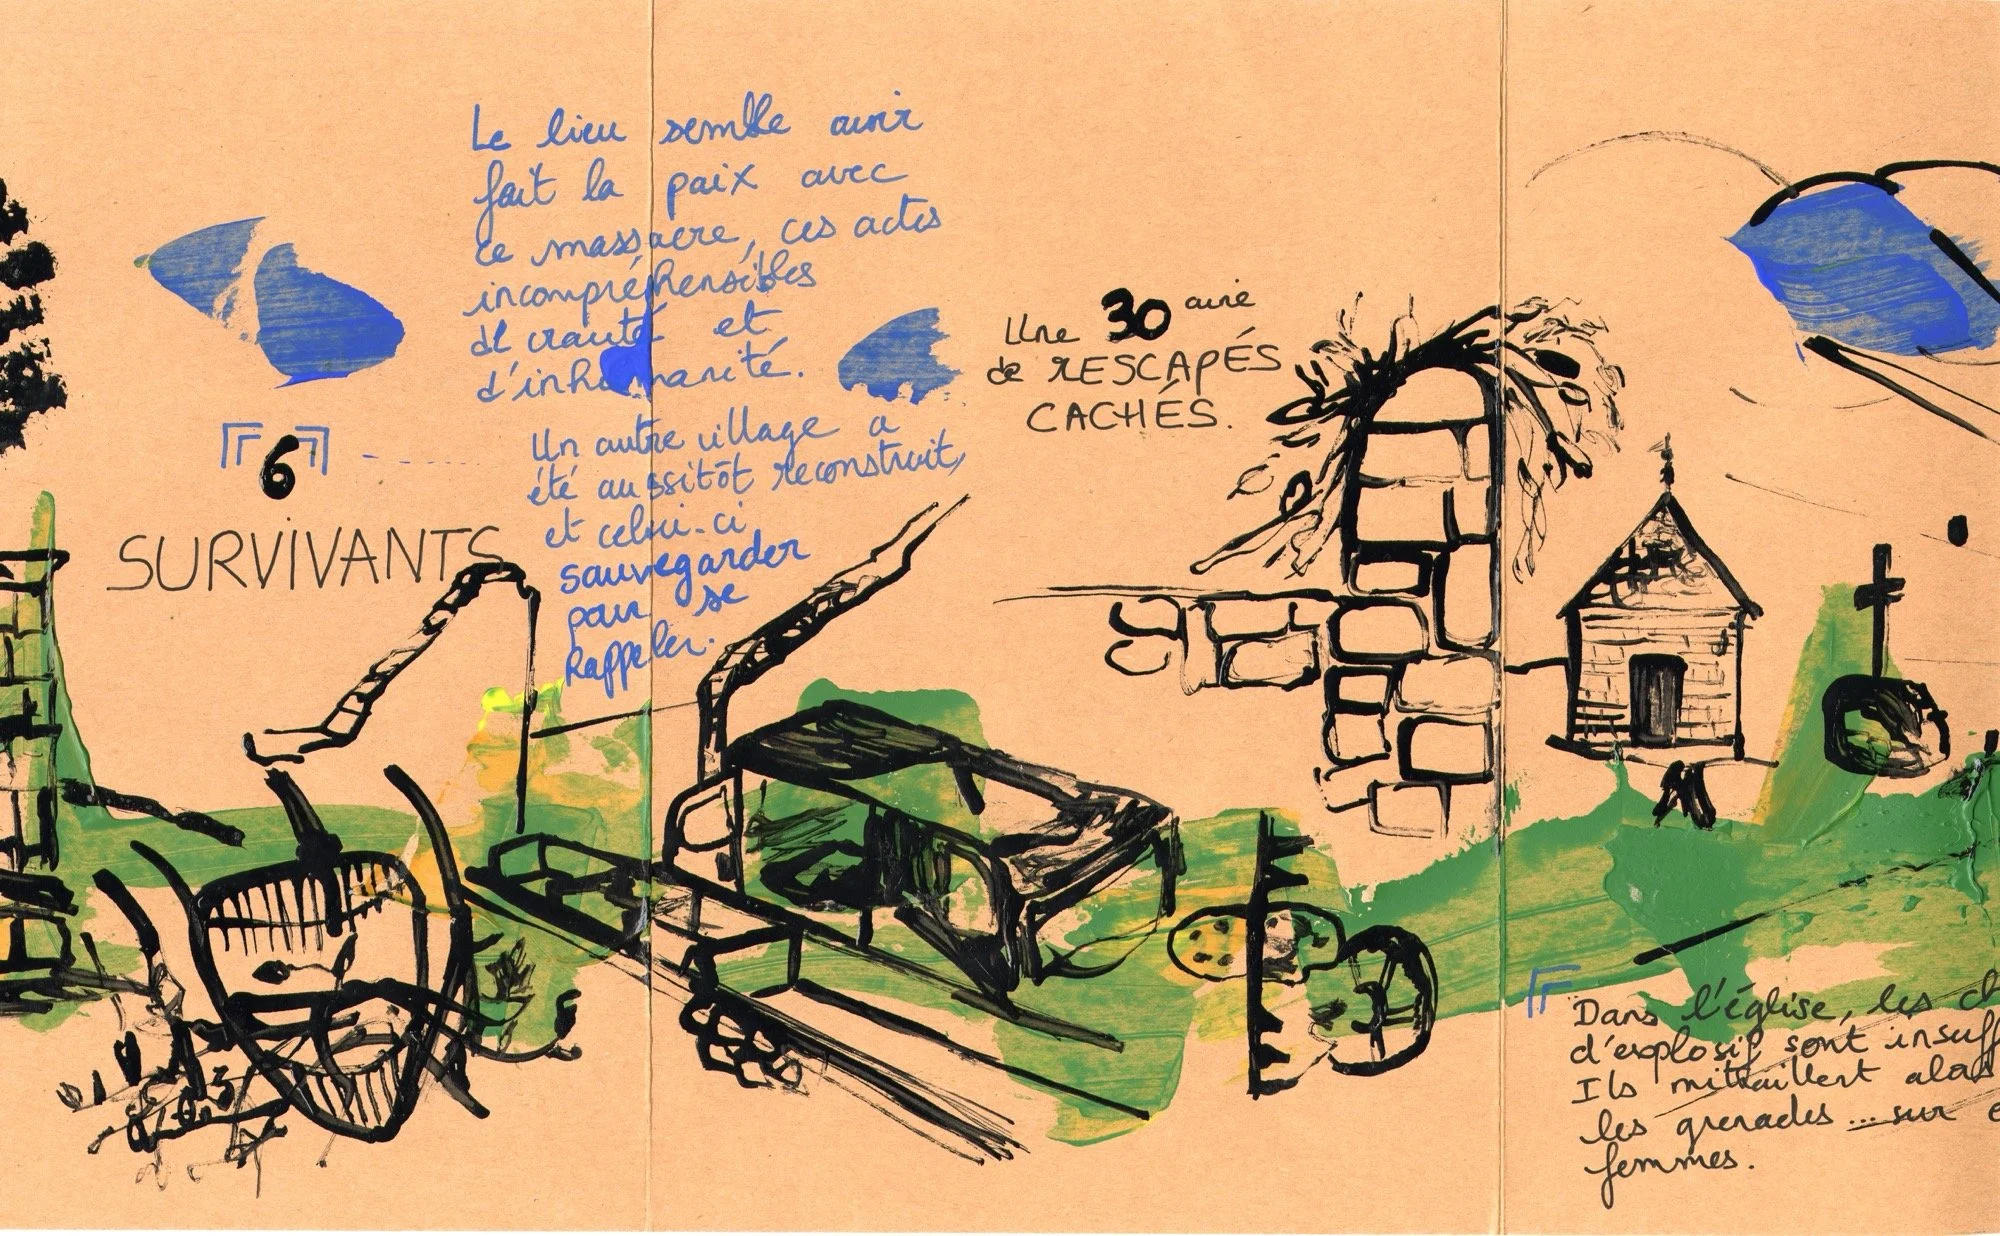 Le lieu semble avoir
fait la paix avec
ce massacre, ces actes
incompréhensibles
de crauté et
d'inhumanité.
Un autre village a
été aussitôt reconstruit,
et celui-ci
sauvegarder
pour se
Rappeler.
6
SURVIVANTS
Une 30aine
de RESCAPÉS
CACHÉS.
Dans l'église, les
d'explosif sont
Ils mitraillent
les grenades ... sur
femmes.